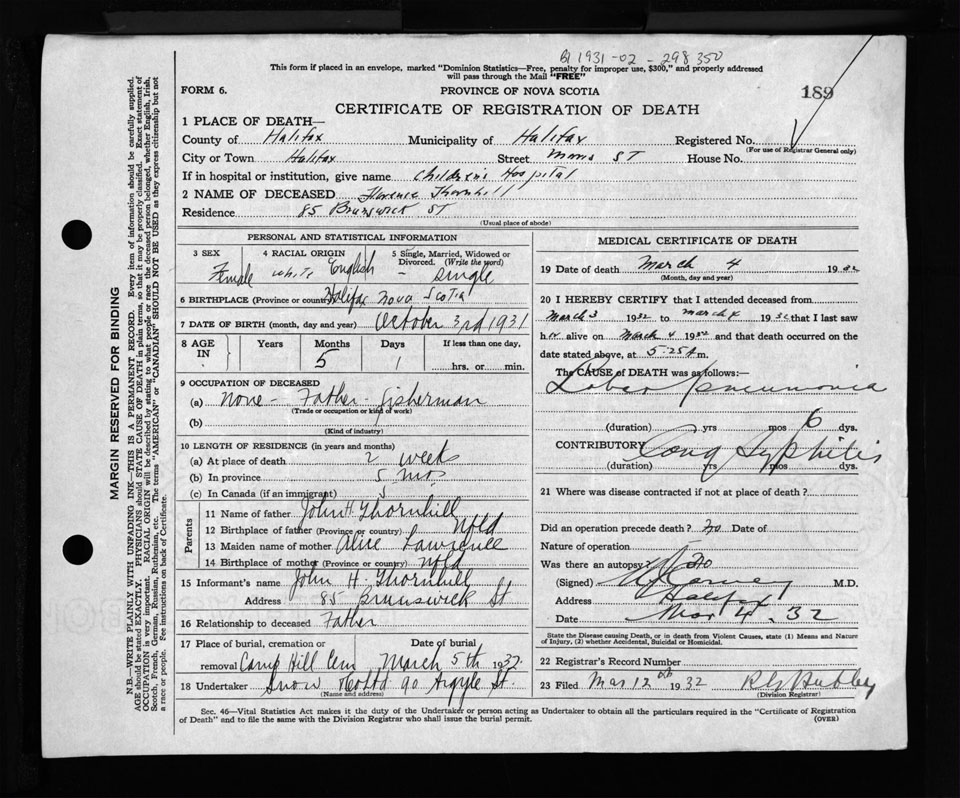 B 1931-02-298350
This form if placed in an envelope, marked "Dominion Statistics—Free, penalty for improper use, $300," and properly addressed
will pass through the Mail "FREE"
FORM 6. PROVINCE OF NOVA SCOTIA 189
CERTIFICATE OF REGISTRATION OF DEATH
1 PLACE OF DEATH—
County of Halifax Municipality of Halifax Registered No.
(For use of Registrar General only)
City or Town Halifax Street ST House No.
If in hospital or institution, give name Children's Hospital
2 NAME OF DECEASED Florence Thornhill
Residence 85 Brunswick ST
(Usual place of abode)
PERSONAL AND STATISTICAL INFORMATION
3 SEX 4 RACIAL ORIGIN 5 Single, Married, Widowed or Divorced. (Write the word)
Female white English - single
6 BIRTHPLACE (Province or country) Halifax Nova Scotia
7 DATE OF BIRTH (month, day and year) October 3rd 1931
8 AGE IN Years Months Days If less than one day,
5 1 hrs. or min.
9 OCCUPATION OF DECEASED
(a) None - Father - fisherman
(Trade or occupation or kind of work)
(b)
(Kind of industry)
10 LENGTH OF RESIDENCE (in years and months)
(a) At place of death 2 week
(b) In province 5 mos
(c) In Canada (if an immigrant) 5
Parents
11 Name of father John H. Thornhill
12 Birthplace of father (Province or country) Nfld
13 Maiden name of mother Alice
14 Birthplace of mother (Province or country) Nfld
15 Informant's name John H. Thornhill
Address 85 Brunswick St
16 Relationship to deceased Father
17 Place of burial, cremation or Date of burial
removal Camp Hill Cem March 5th 1932
18 Undertaker Snow & Co Ltd 90 Argyle St.
(Name and address)
MEDICAL CERTIFICATE OF DEATH
19 Date of death March 4 1932
(Month, day and year)
20 I HEREBY CERTIFY that I attended deceased from
March 3 1932 to March 4 1932 that I last saw
her alive on March 4 1932 and that death occurred on the
date stated above, at 5.25 A m.
The CAUSE of DEATH was as follows:—
Lobar Pneumonia
(duration) yrs mos 6 dys.
CONTRIBUTORY Cong Syphilis
(duration) yrs mos dys.
21 Where was disease contracted if not at place of death?
Did an operation precede death? No Date of
Nature of operation
Was there an autopsy? No
(Signed) M.D.
Address Halifax
Date Mar 4. 32
State the Disease causing Death, or in death from Violent Causes, state (1) Means and Nature
of Injury, (2) whether Accidental, Suicidal or Homicidal.
22 Registrar's Record Number
23 Filed Mar 12th 1932
(Division Registrar)
Sec. 46—Vital Statistics Act makes it the duty of the Undertaker or person acting as Undertaker to obtain all the particulars required in the "Certificate of Registration
of Death" and to file the same with the Division Registrar who shall issue the burial permit. (OVER)
MARGIN RESERVED FOR BINDING
N.B.—WRITE PLAINLY WITH UNFADING INK—THIS IS A PERMANENT RECORD. Every item of information should be carefully supplied.
AGE should be stated EXACTLY. PHYSICIANS should STATE CAUSE OF DEATH in plain terms, so that it may be properly classified. Exact statement of
OCCUPATION is very important. RACIAL ORIGIN will be described by stating to what people or race the deceased person belonged, whether English, Irish,
Scotch, French, German, Russian, Ruthenian, etc. The terms "AMERICAN" or "CANADIAN" SHOULD NOT BE USED as they express citizenship but not
a race or people. See instructions on back of Certificate.